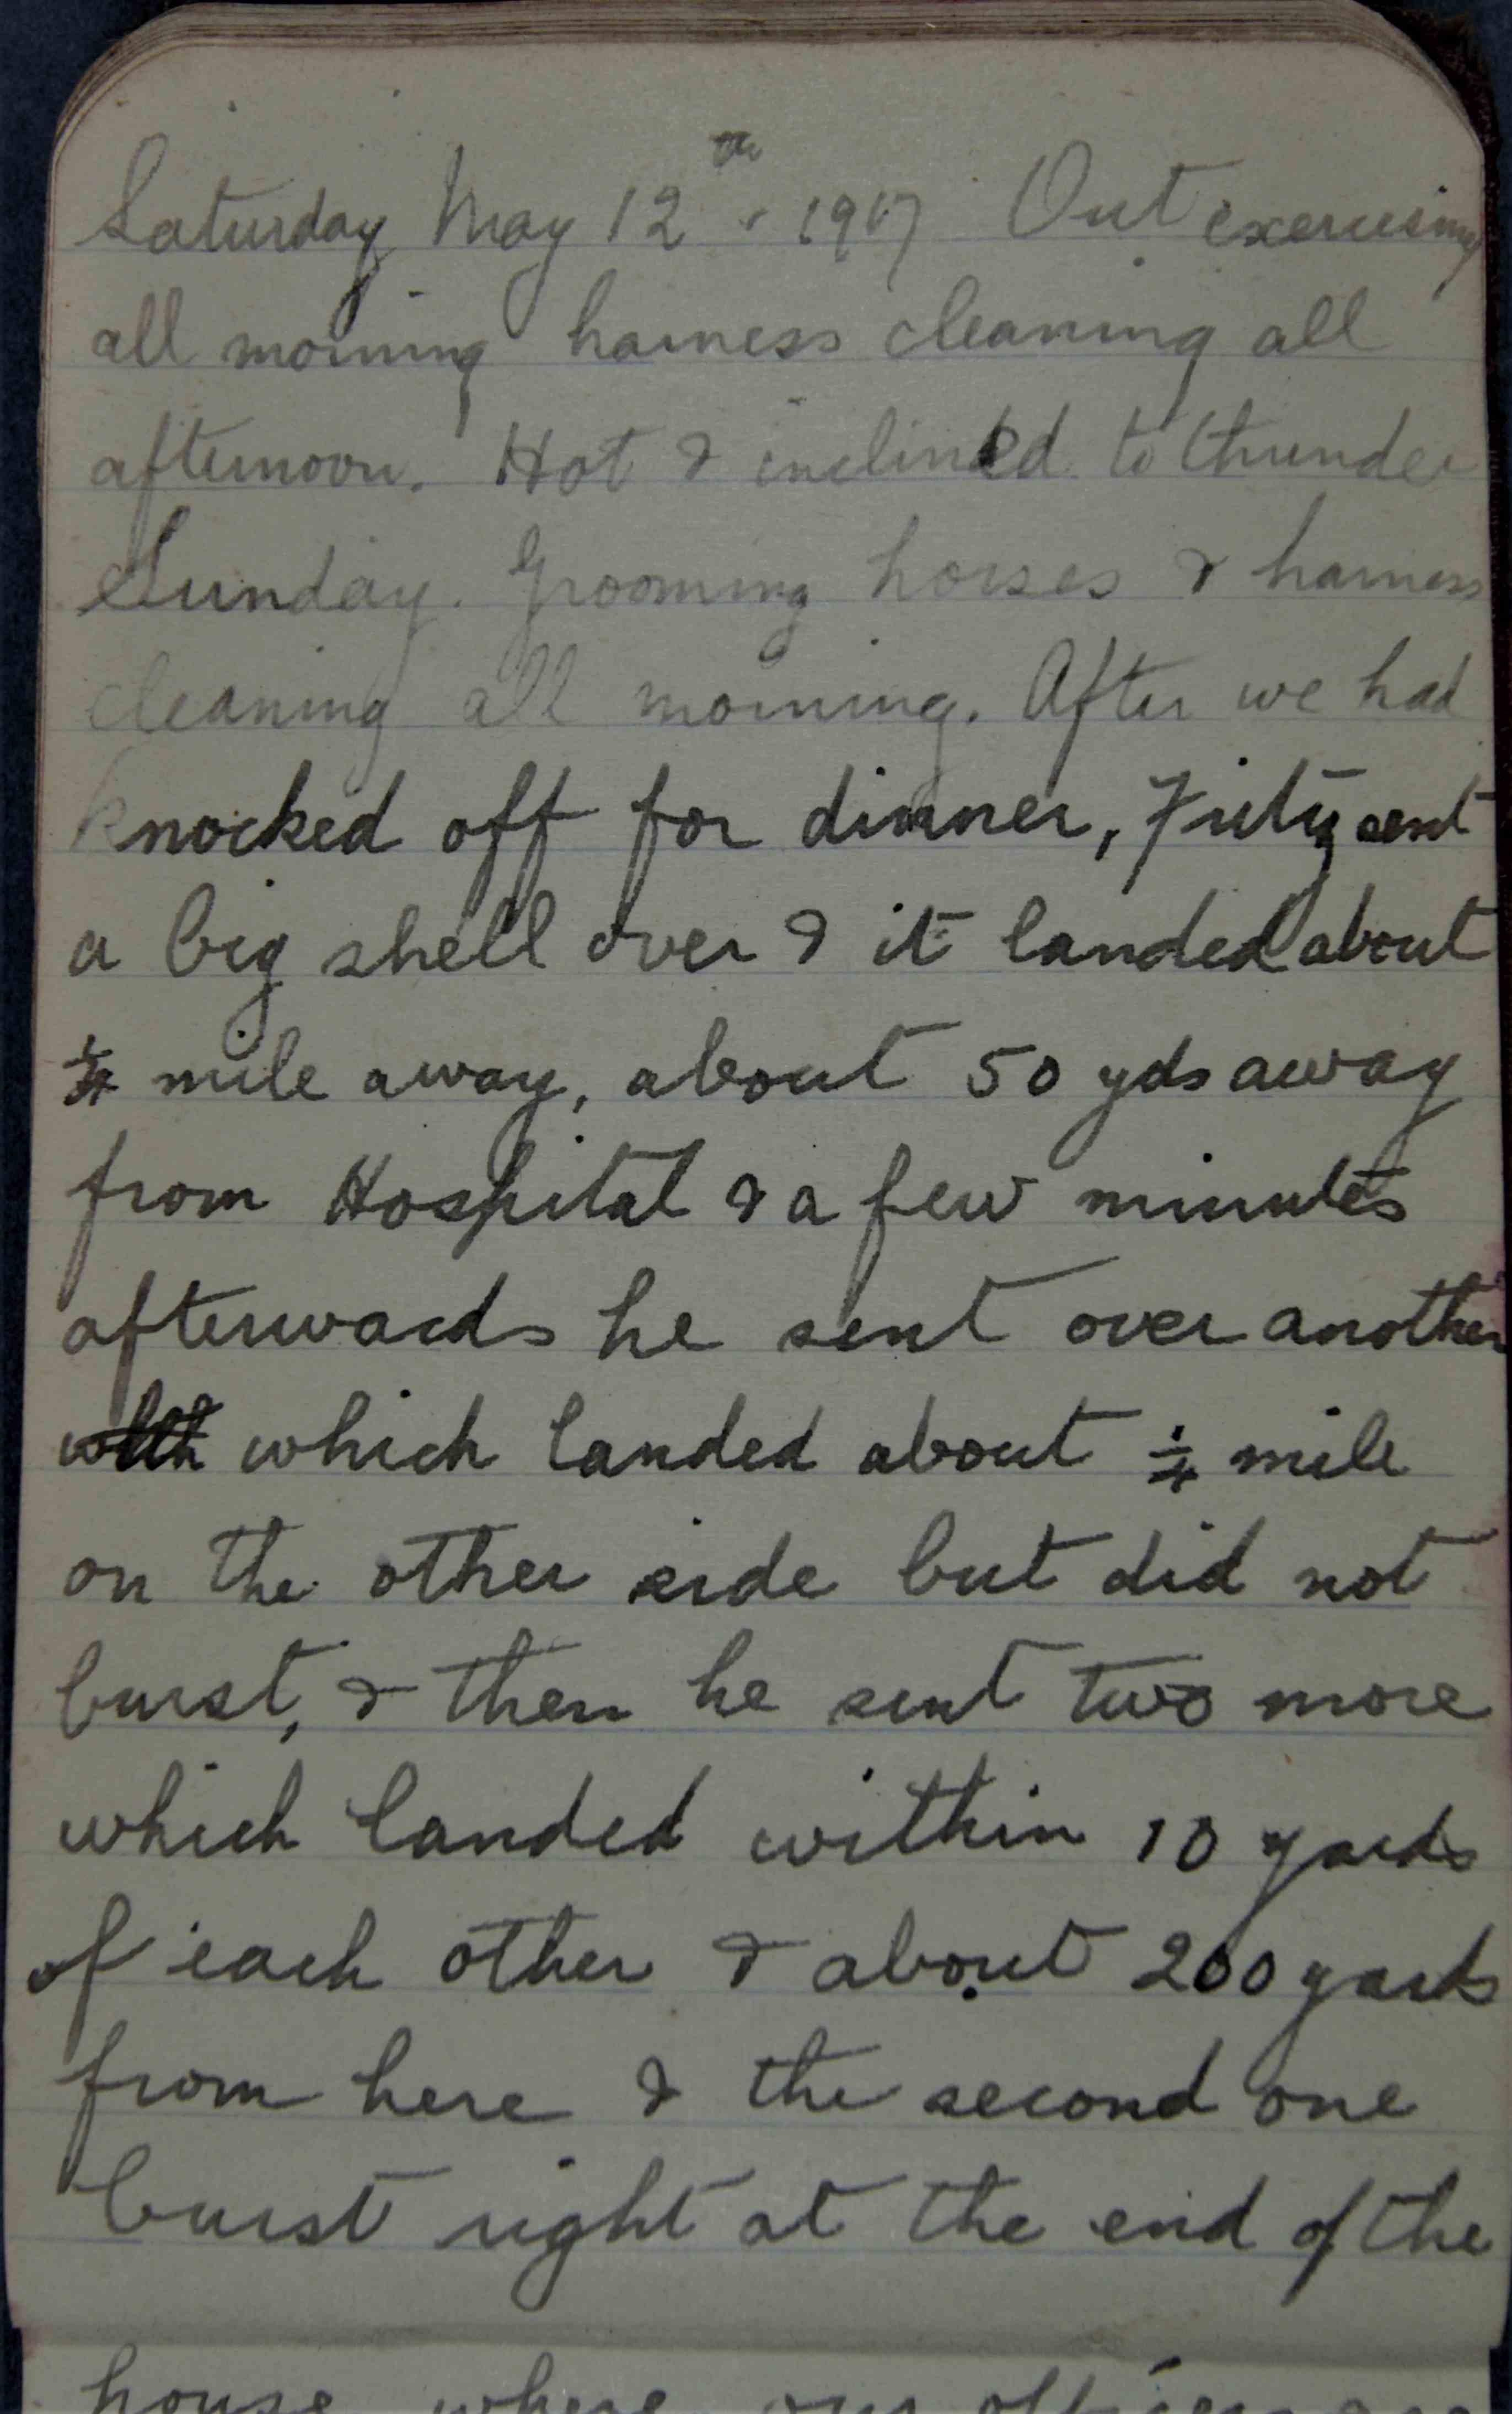 Saturday May 12th. 1917 Out exercising
all morning harness cleaning all
afternoon. Hot & inclined to thunder
Sunday. Grooming horses & harness
cleaning all morning. After we had
knocked off for dinner, Fritz sent
a big shell over & it landed about
¼ mile away, about 50 yds away
from Hospital & a few minutes
afterwards he sent over another
which landed about ¼ mile
on the other side but did not
burst, & then he sent two more
which landed within 10 yards
of each other & about 200 yards
from here & the second one
burst right at the end of the
house where our officers are